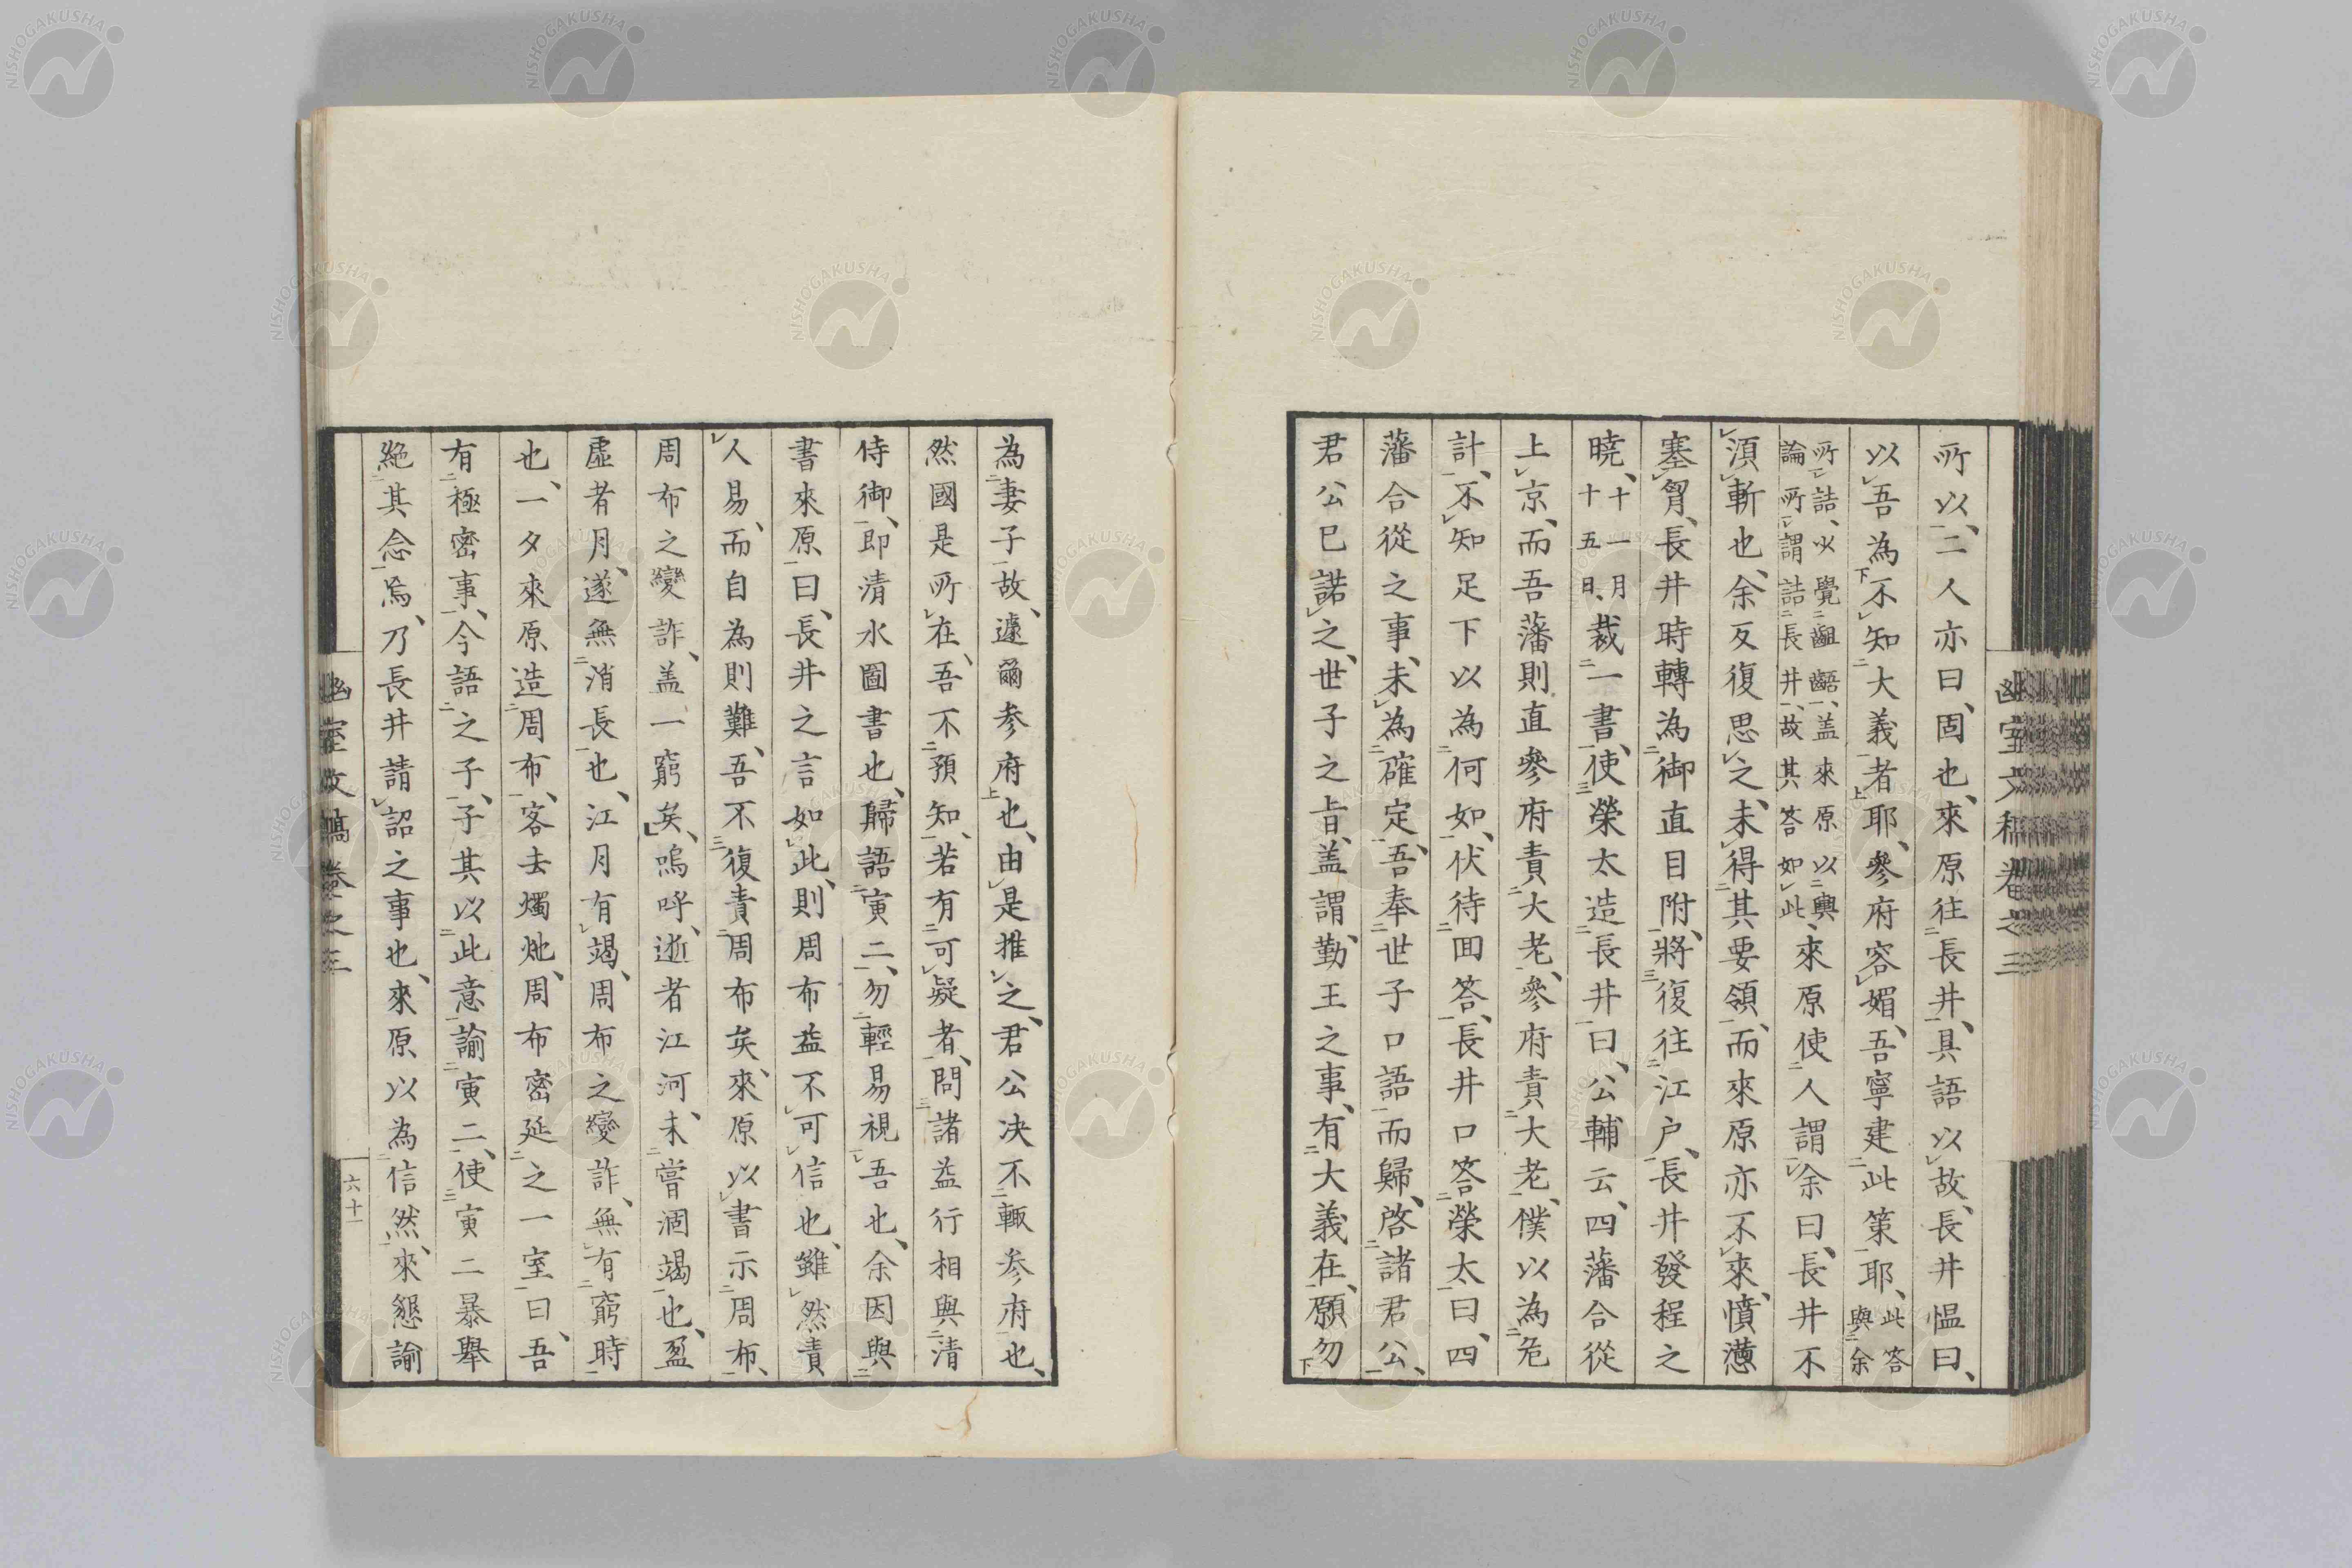 幽室文稿卷之三
所以、二人亦曰、固也、來原往長井、具語以故、長井慍曰、
以吾為不知大義者耶、參府容媚、吾寧建此策耶、此答與余
所詰、少覺齟齬、蓋來原以與論所謂詰長井、故其答如此、來原使人謂余曰、長井不
湏斬也、余反復思之、未得其要領、而來原亦不來、憤懣
塞胷、長井時轉為御直目附、將復往江户、長井發程之
曉、十一月十五日、裁一書、使榮太造長井曰、公輔云、四藩合從
上京、而吾藩則直參府責大老、參府責大老、僕以為危
計、不知足下以為何如、伏待回答、長井口答榮太曰、四
藩合從之事、未為確定、吾奉世子口語而歸、啓諸君公、
君公已諾之、世子之旨、盖謂勤王之事、有大義在、願勿
為妻子故、遽爾参府也、由是推之、君公决不輙参府也、
然國是所在、吾不預知、若有可疑者、問諸益行相與清
侍御、即清水圖書也、歸語寅二、勿輕易視吾也、余因與
書來原曰、長井之言如此、則周布益不可信也、雖然責
人易、而自為則難、吾不復責周布矣、來原以書示周布、
周布之變詐、盖一窮矣、嗚呼、逝者江河、未嘗涸竭也、盈
虛者月、遂無消長也、江月有竭、周布之變詐、無有窮時
也、一夕來原造周布、客去燭灺、周布密延之一室曰、吾
有極密事、今語之子、子其以此意諭寅二、使寅二暴舉
絶其念焉、乃長井請詔之事也、來原以為信然、來懇諭
幽室文稿卷之三
六十一